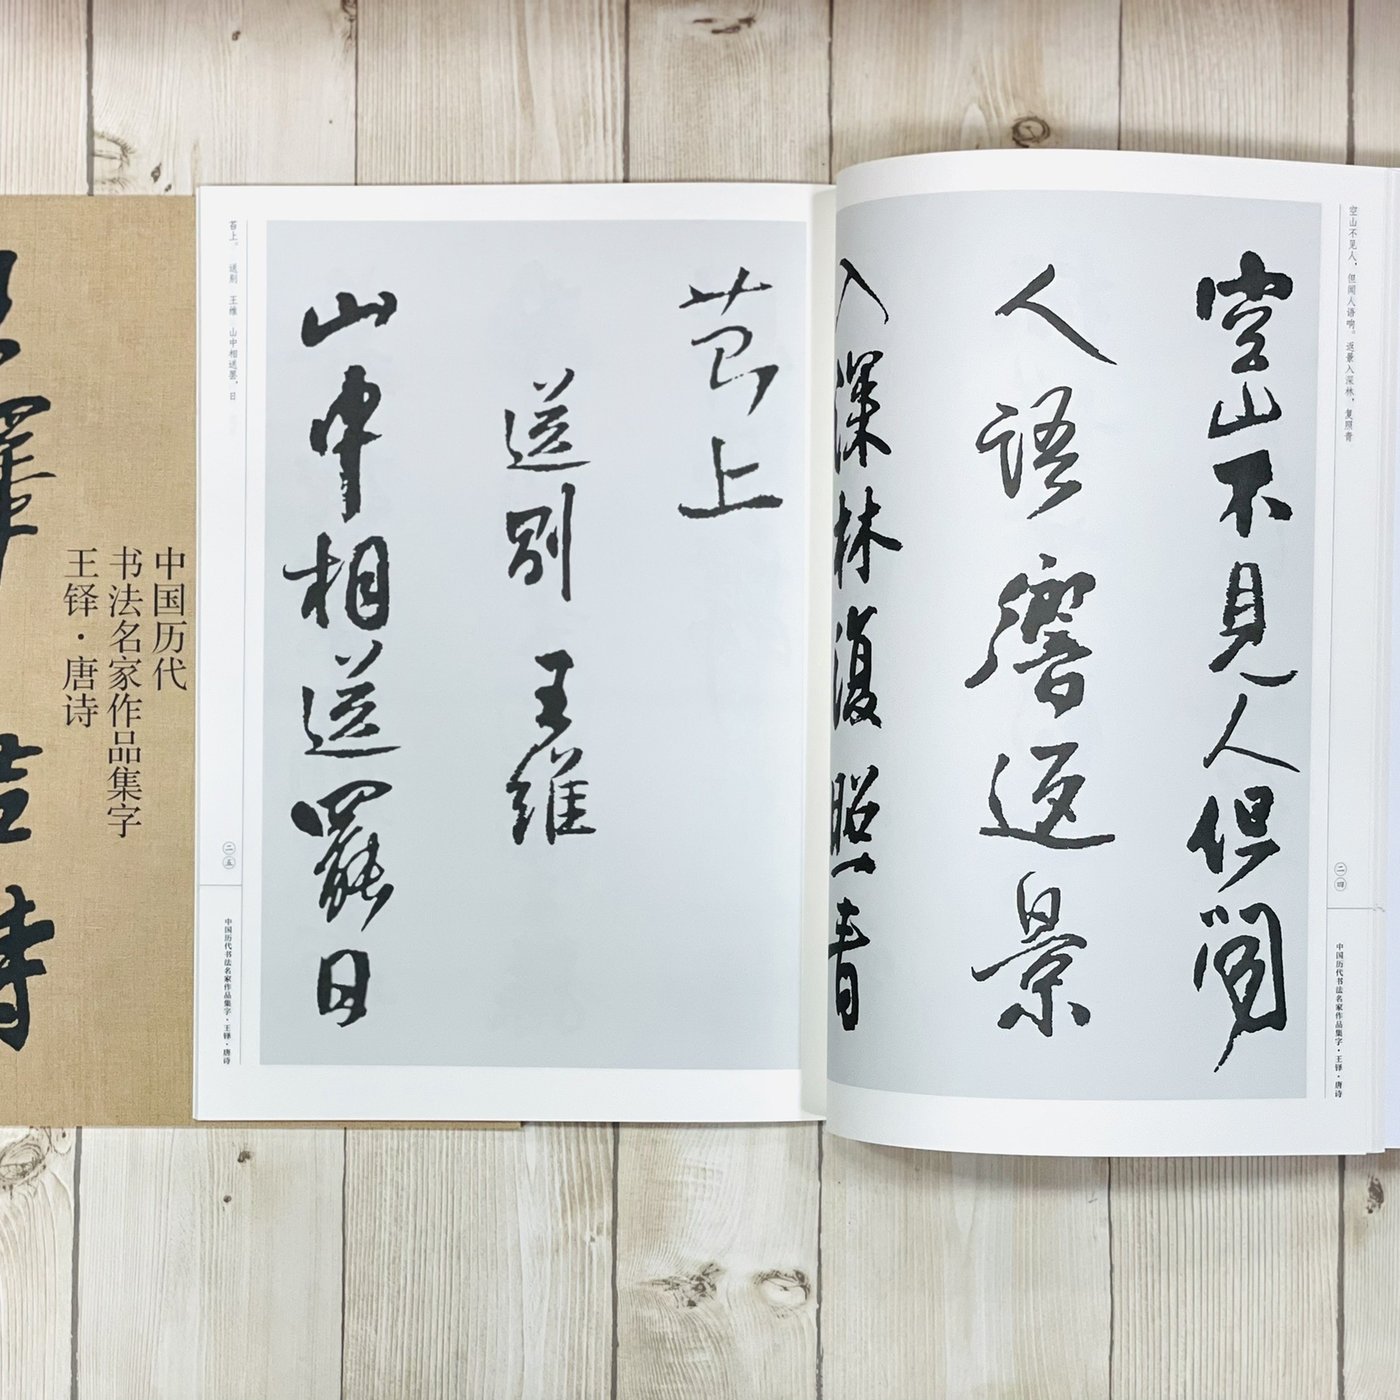 空山不见人，但闻人语响。返景入深林，复照青
空山不見人但聞
人語響返景
入深林復照青
二四
中国历代书法名家作品集字·王铎·唐诗
苔上
送別 王維
山中相送罷日
苔上。 送别 王维 山中相送罢，日
二五
中国历代书法名家作品集字·王铎·唐诗
中国历代
书法名家作品集字
王铎·唐诗